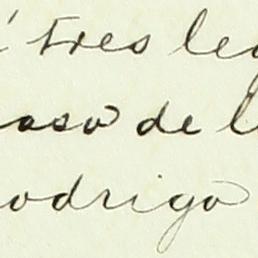 tres le
aso de l
odrigo